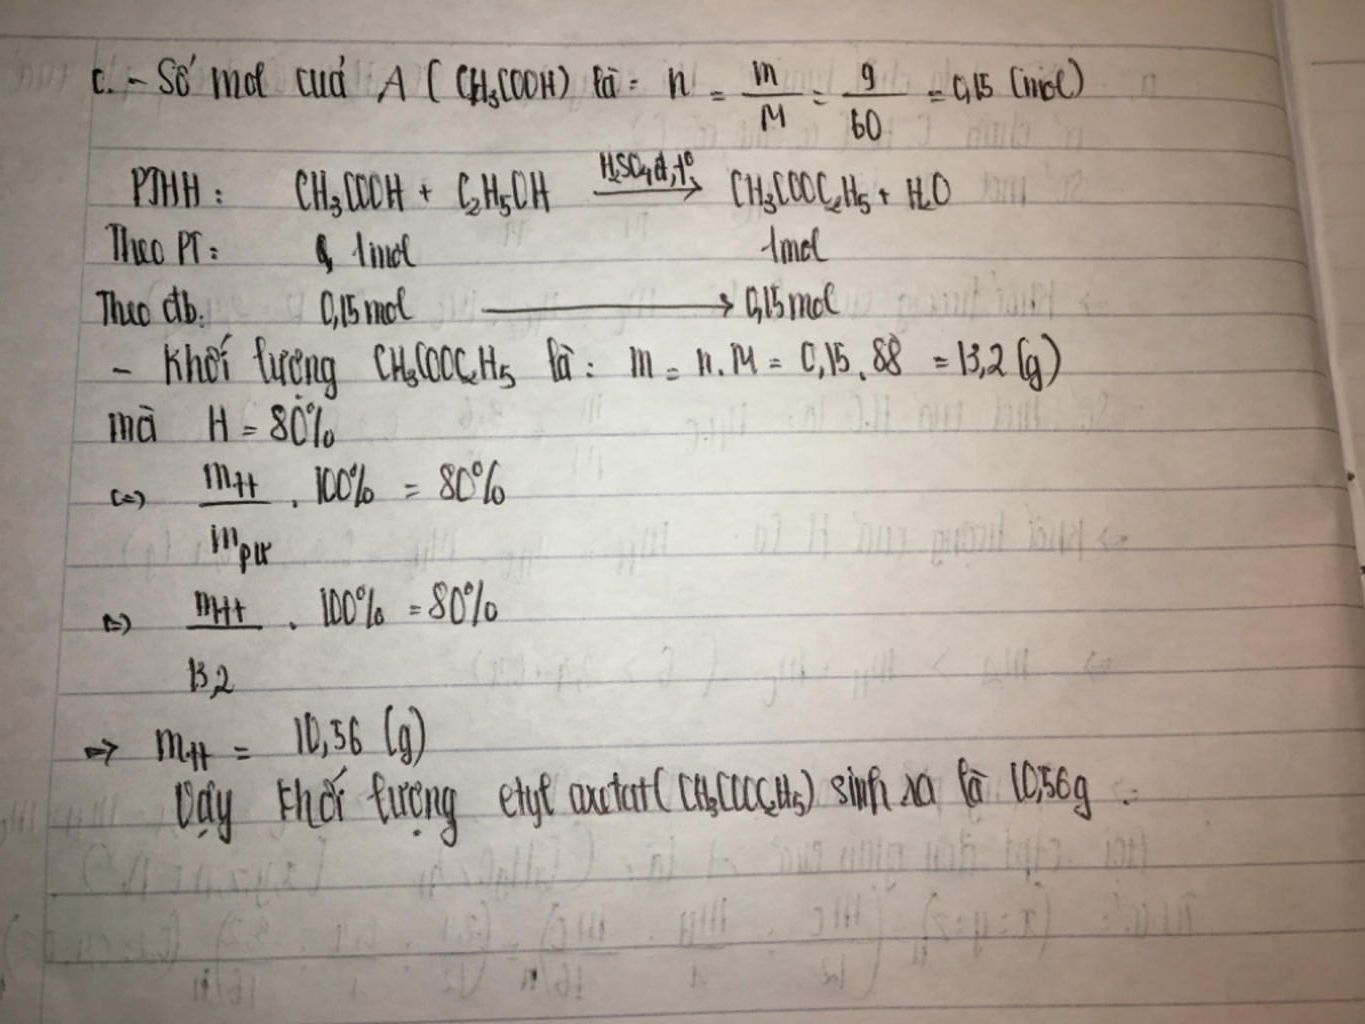 c. - Số mol cuả A ( CH₃COOH) là: n = m/M = 9/60 = 0,15 (mol)
PTHH: CH₃COOH + C₂H₅OH H₂SO₄đ,t° → CH₃COOC₂H₅ + H₂O
Theo PT: 1mol 1mol
Theo đb: 0,15mol → 0,15mol
- Khối lượng CH₃COOC₂H₅ là: m = n.M = 0,15.88 = 13,2 (g)
mà H = 80%
(=) mtt/mpư . 100% = 80%
(=) mtt/13,2 . 100% = 80%
=> mtt = 10,56 (g)
Vậy khối lượng etyl axetat (CH₃COOC₂H₅) sinh ra là 10,56g .